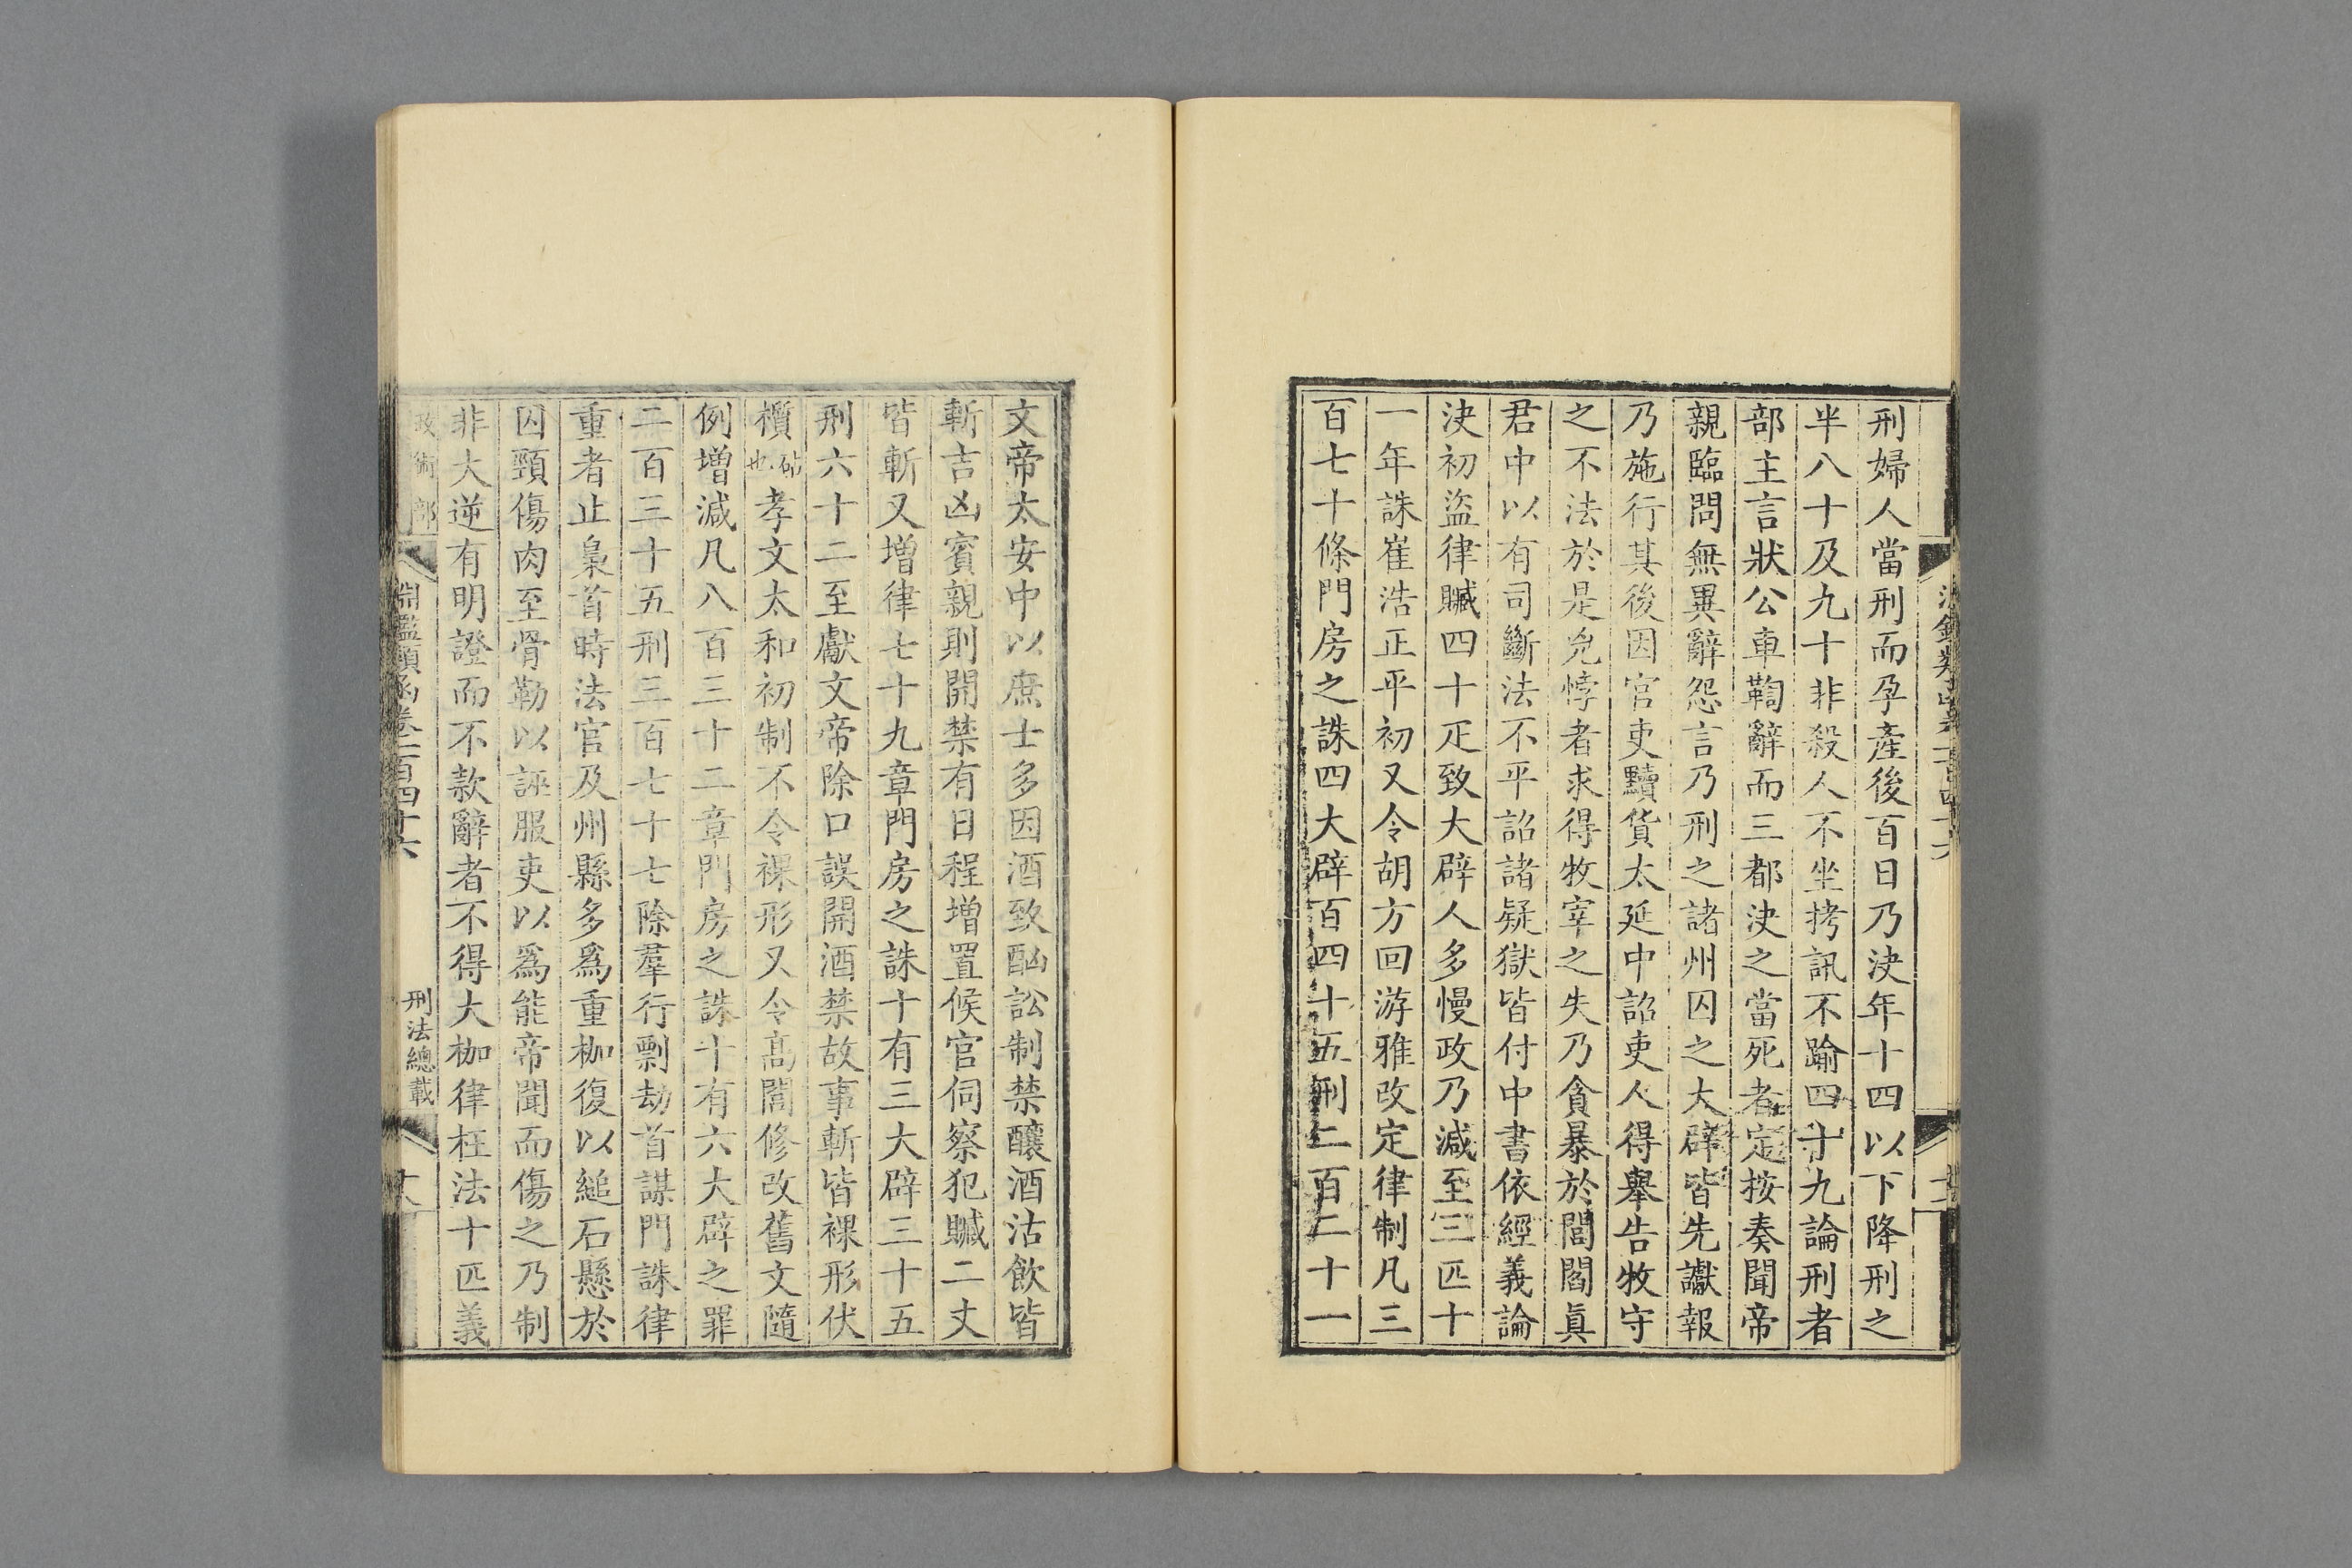 刑婦人當刑而孕產後百日乃決年十四以下降刑之
半八十及九十非殺人不坐拷訊不踰四十九論刑者
部主言狀公車鞫辭而三都決之當死者定按奏聞帝
親臨問無異辭怨言乃刑之諸州囚之大辟皆先讞報
乃施行其後因官吏黷貨太延中詔吏人得舉告牧守
之不法於是兇悖者求得牧宰之失乃貪暴於閭閻真
君中以有司斷法不平詔諸疑獄皆付中書依經義論
決初盜律贓四十疋致大辟人多慢政乃減至三匹十
一年誅崔浩正平初又令胡方回游雅改定律制凡三
百七十條門房之誅四大辟百四十五刑二百二十一
文帝太安中以庶士多因酒致酗訟制禁釀酒沽飲皆
斬吉凶賓親則開禁有日程增置候官伺察犯贓二丈
皆斬又增律七十九章門房之誅十有三大辟三十五
刑六十二至獻文帝除口誤開酒禁故事斬皆裸形伏
櫍砧也孝文太和初制不令裸形又令高閭修改舊文隨
例增減凡八百三十二章門房之誅十有六大辟之罪
二百三十五刑三百七十七除羣行剽劫首謀門誅律
重者止梟首時法官及州縣多為重枷復以縋石懸於
囚頸傷肉至骨勒以誣服吏以為能帝聞而傷之乃制
非大逆有明證而不款辭者不得大枷律枉法十匹義
政術部 淵鑑類函卷一百四十六 刑法總載 十八